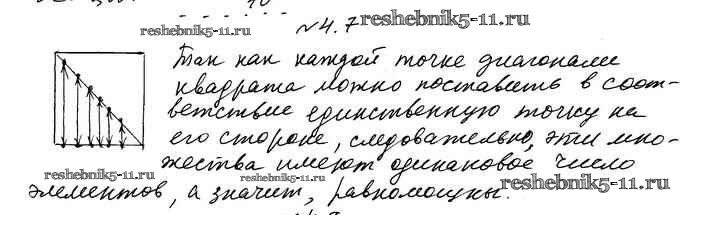 №4.7
reshebnik5-11.ru
reshebnik5-11.ru
Так как каждой точке диагонали
квадрата можно поставить в соот-
ветствие единственную точку на
его стороне, следовательно, эти мно-
жества имеют одинаковое число
reshebnik5-11.ru
reshebnik5-11.ru
элементов, а значит, равномощны.
reshebnik5-11.ru